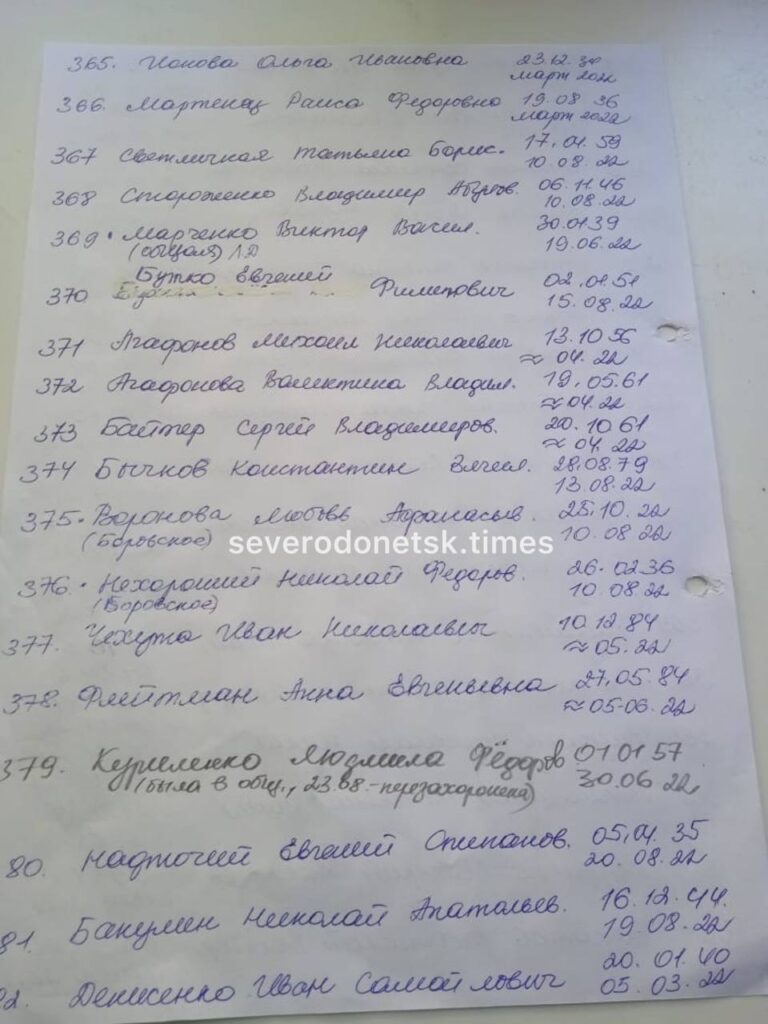 365. Ионова Ольга Ивановна 23.12.34
март 2022
366. Мартенец Раиса Федоровна 19.08 36
март 2022
367 Светличная Татьяна Борис. 17.04.59
10.08.22
368 Стороженко Владимир 06.11.46
10.08.22
369. Марченко Виктор Васил. 30.01.39
(общая) 19.06.22
Бутко Евгений
370 Филипович 02.01.51
15.08.22
371 Агафонов Михаил Николаевич 13.10 56
≈ 04.22
372 Агафонова Валентина Владим. 19.05.61
≈ 04.22
373 Байтер Сергей Владимиров. 20.10 61
≈ 04.22
374 Бычков Константин Вячесл. 28.08.79
13.08.22
375. Воронова Любовь Афанасьев. 25.10.22
(Боровское) 10.08 22
severodonetsk.times
376. Нехороший Николай Федоров. 26.02.36
(Боровское) 10.08 22
377. Чехута Иван Николаевич 10.12.84
≈ 05.22
378. Флейтман Анна Евгеньевна 27.05.84
≈ 05-06.22
379. Куриленко Людмила Фёдоров 01 01 57
(была в общ., 23.08.-перезахоронена) 30.06 22
80. Надточий Евгений Степанов. 05.04.35
20.08.22
81. Бакулин Николай Анатольев. 16.12.44.
19.08.22
2. Денисенко Иван Самойлович 20.01.40
05.03.22